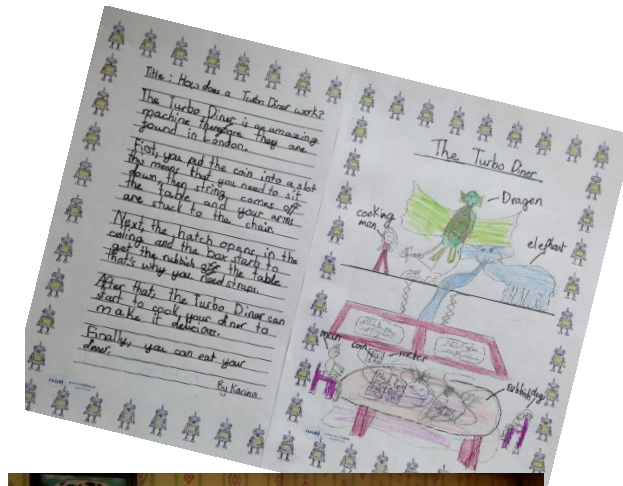 Title: How does a Turbo Diner work?
The Turbo Diner is an amazing
machine therefore they are
found in London.
First, you put the coin into a slot
this means that you need to sit
down then string comes off
the table and your arms
are stuck to the chair.
Next the hatch opens, in the
ceiling and the bar start to
get the rubbish off the table
that's why you need straps.
After that, The Turbo Diner can
start to cook your diner to
make it delicious.
Finally, you can eat your
diner.
By Karina
The Turbo Diner
Dragon
cooking
man
elephant
man
meter
rubbish